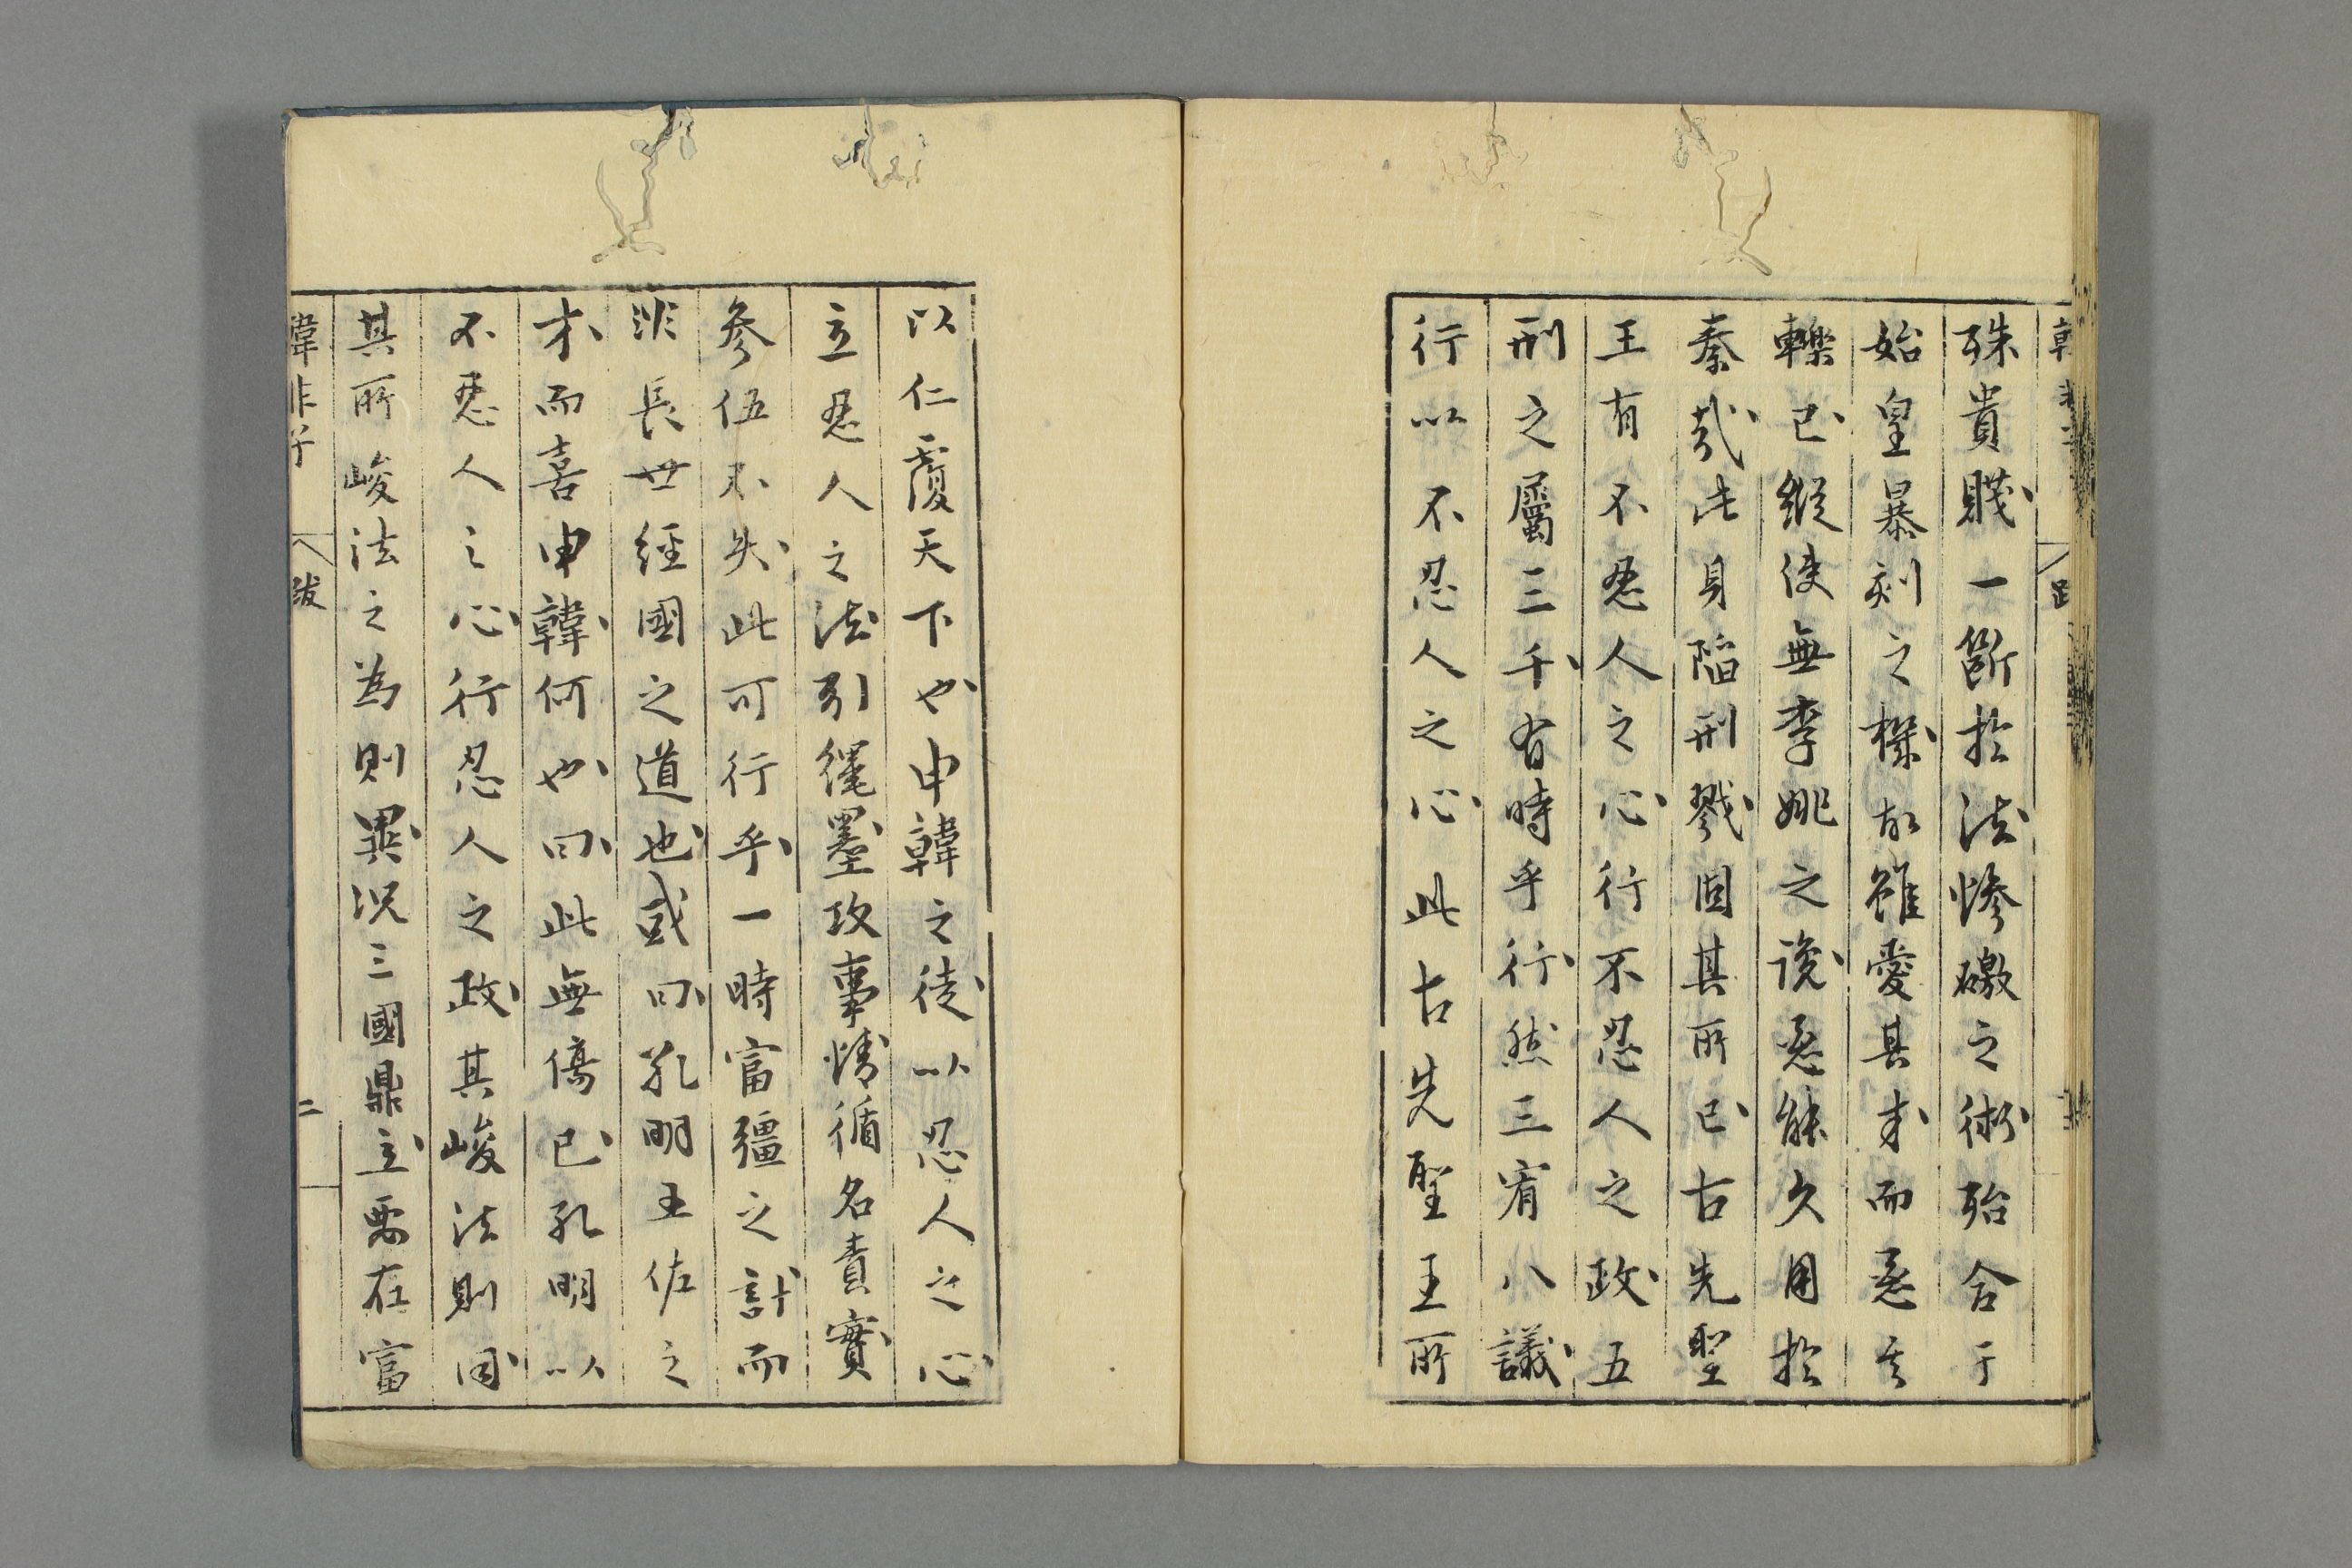 殊貴賤一斷於法慘礉之術殆合于
始皇暴刻之機故雖愛其才而惡其
轢已縱使無李姚之讒惡能久用於
秦哉此身陷刑戮固其所已古先聖
王有不忍人之心行不忍人之政五
刑之屬三千有時乎行然三宥八議
行以不忍人之心此古先聖王所
以仁覆天下也申韓之徒以忍人之心
立忍人之法引繩墨攻事情循名責實
參伍不失此可行乎一時富彊之計而
非長世經國之道也或曰孔明王佐之
才而喜申韓何也曰此無傷已孔明以
不忍人之心行忍人之政其峻法則同
其所峻法之為則異況三國鼎立要在富
韓非子 跋 二